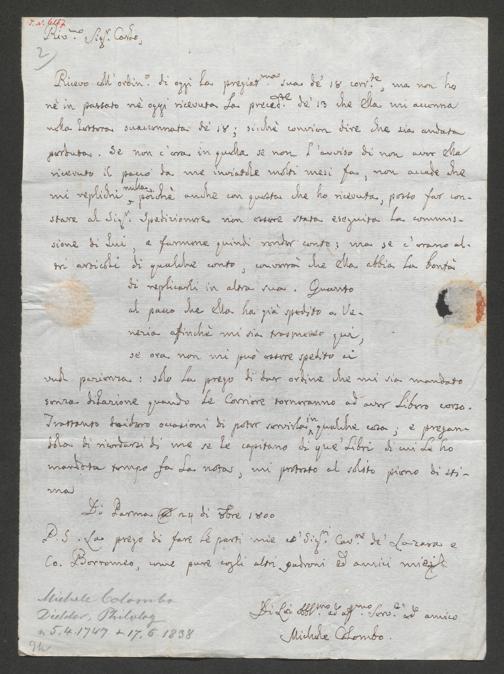 I.N. 6147
2
Riv.mo Sig.r Cardo,
Ricevo coll'ordin.o di oggi la pregiat.ma sua de' 18 corr.te, ma non ho
nè in passato nè oggi ricevuta la preced.te de' 13 che ella mi accenna
nella lettera summentovata de' 18; sicchè convien dire che sia andata
perduta. Se non c'era in quella se non l'avviso di non aver ella
ricevuto il pacco da me inviatole molti mesi fa, non accade che
mi replichi nulla, perchè anche con questa che ho ricevuta, posso far con-
stare al Sig.r Spedizionere non essere stata eseguita la commis-
sione di lui, e farmene quindi render conto; ma se c'erano al-
tri articoli di qualche conto, converrà che ella abbia la bontà
di replicarli in altra sua. Quanto
al pacco che ella ha già spedito a Ve-
nezia affinchè mi sia trasmesso qui,
se ora non mi può essere spedito ci
vuol pazienza: solo la prego di dar ordine che mi sia mandato
senza dilazione quando le Corriere torneranno ad aver libero corso.
Frattanto desidero occasioni di poter servirla in qualche cosa; e pregan-
dola di ricordarsi di me se le capitano di que' libri di cui le ho
mandata tempo fa la nota, mi protesto al solito pieno di sti-
ma
Di Parma 24 di 8bre 1800
P.S. La prego di fare le parti mie co' Sig.ri Cav.re de' Lazara e
Co. Borromeo, come pure cogli altri padroni ed amici miei
Di Lei Obbl.mo ed aff.mo Serv.e ed amico
Michele Colombo.
Michele Colombo
Dichter, Philolog
n 5.4.1747 + 17.6 1838